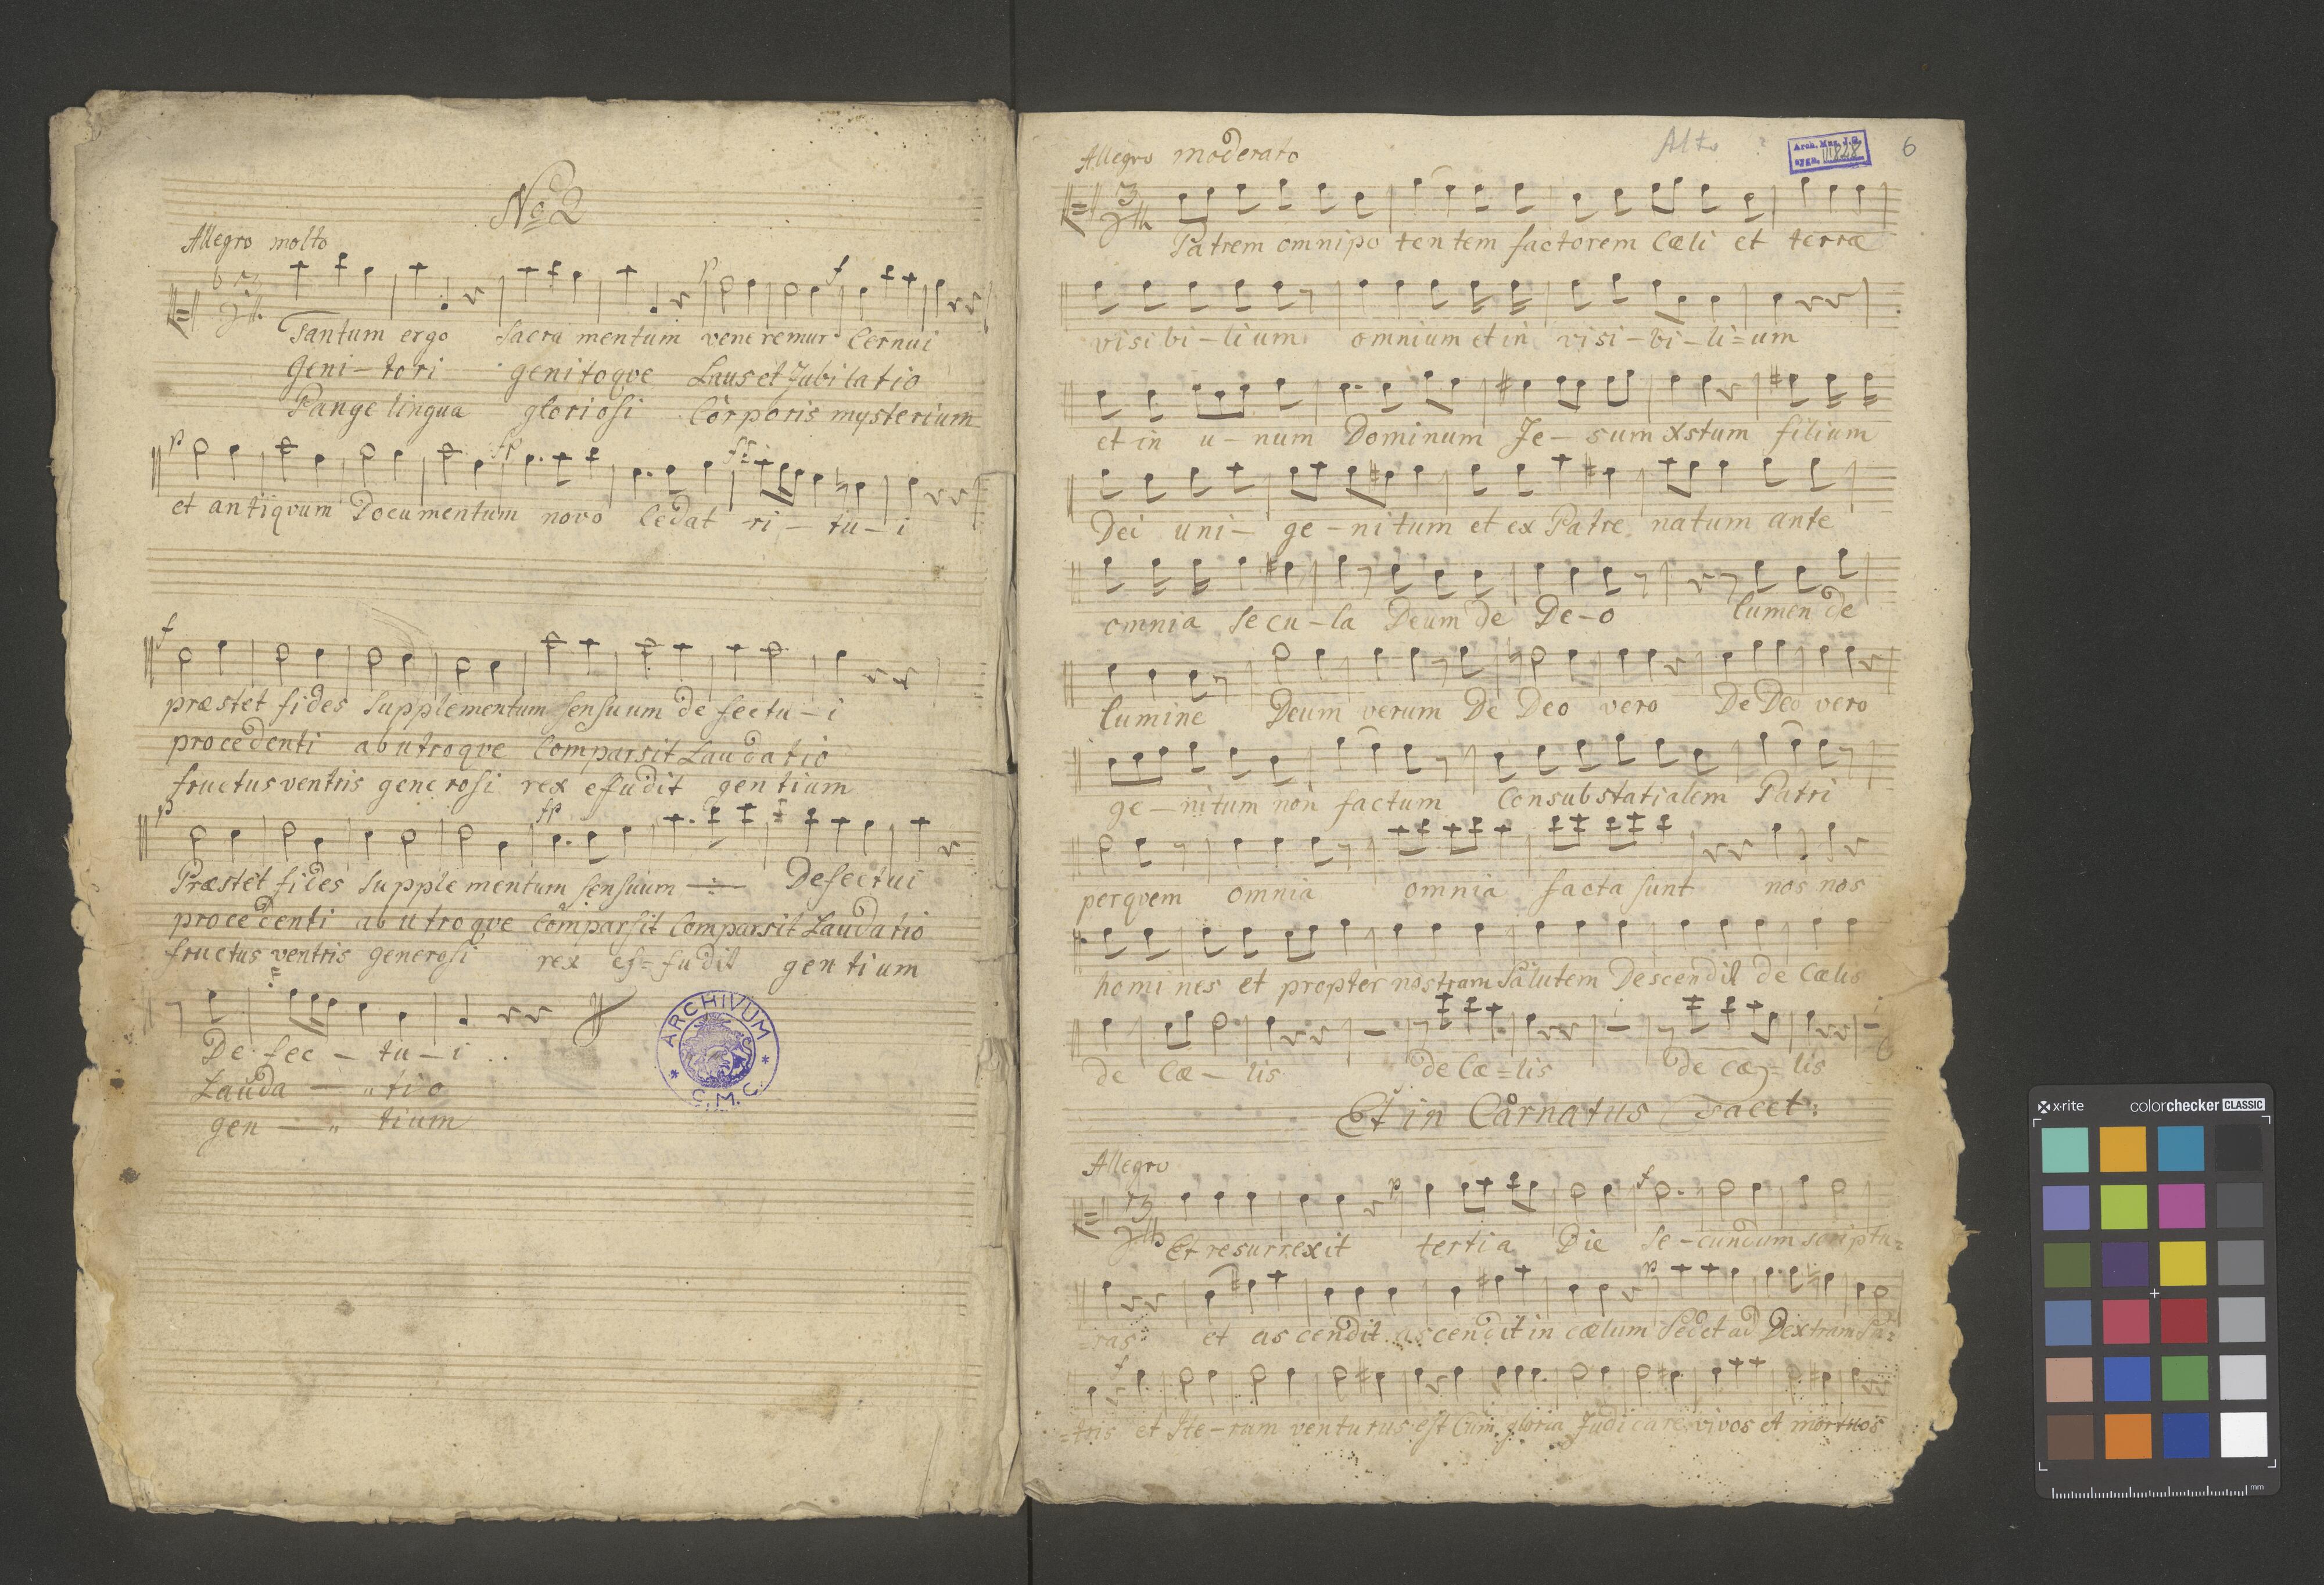 No 2
Allegro molto
Tantum ergo Sacra mentum veneremur Cernui
Geni-tori genitoqve Laus et Jubilatio
Pange lingua gloriosi Corporis mysterium
et antiqvum Documentum novo Cedat ri-tu-i
præstet fides Supplementum sensuum de fectu-i
procedenti ab utroqve Comparsit Laudatio
fructus ventris generosi rex efudit gentium
Præstet fides Supplementum sensuum Defectui
procedenti ab utroqve Comparsit Comparsit Laudatio
fructus ventris generosi rex ef=fudit gentium
De fec - tu-i
Lauda - tio
gen - tium
ARCHIVUM C.M.C.
Allegro moderato
Alto ?
Arch. Muz. J.G.
sygn. III 828
6
Patrem omnipo tentem factorem Cæli et terræ
visibi-lium omnium et in visi-bi-li=um
et in u-num Dominum Je-sum Xstum filium
Dei uni-ge-nitum et ex Patre natum ante
omnia secu-la Deum de De-o lumen de
lumine Deum verum De Deo vero De Deo vero
ge-nitum non factum Consubstatialem Patri
perqvem omnia omnia facta sunt nos nos
homines et propter nostram Salutem Descendit de Cælis
de Cæ-lis de Cæ=lis de cæ=lis
Et in Carnatus Tacet:
Allegro
Et resurrexit tertia Die Se-cundum scriptu=
=ras et as cendit ascendit in cælum Sedet ad Dextram Pa=
=tris et Ite-rum venturus est Cum gloria Judicare vivos et mortuos
x-rite colorchecker CLASSIC
mm